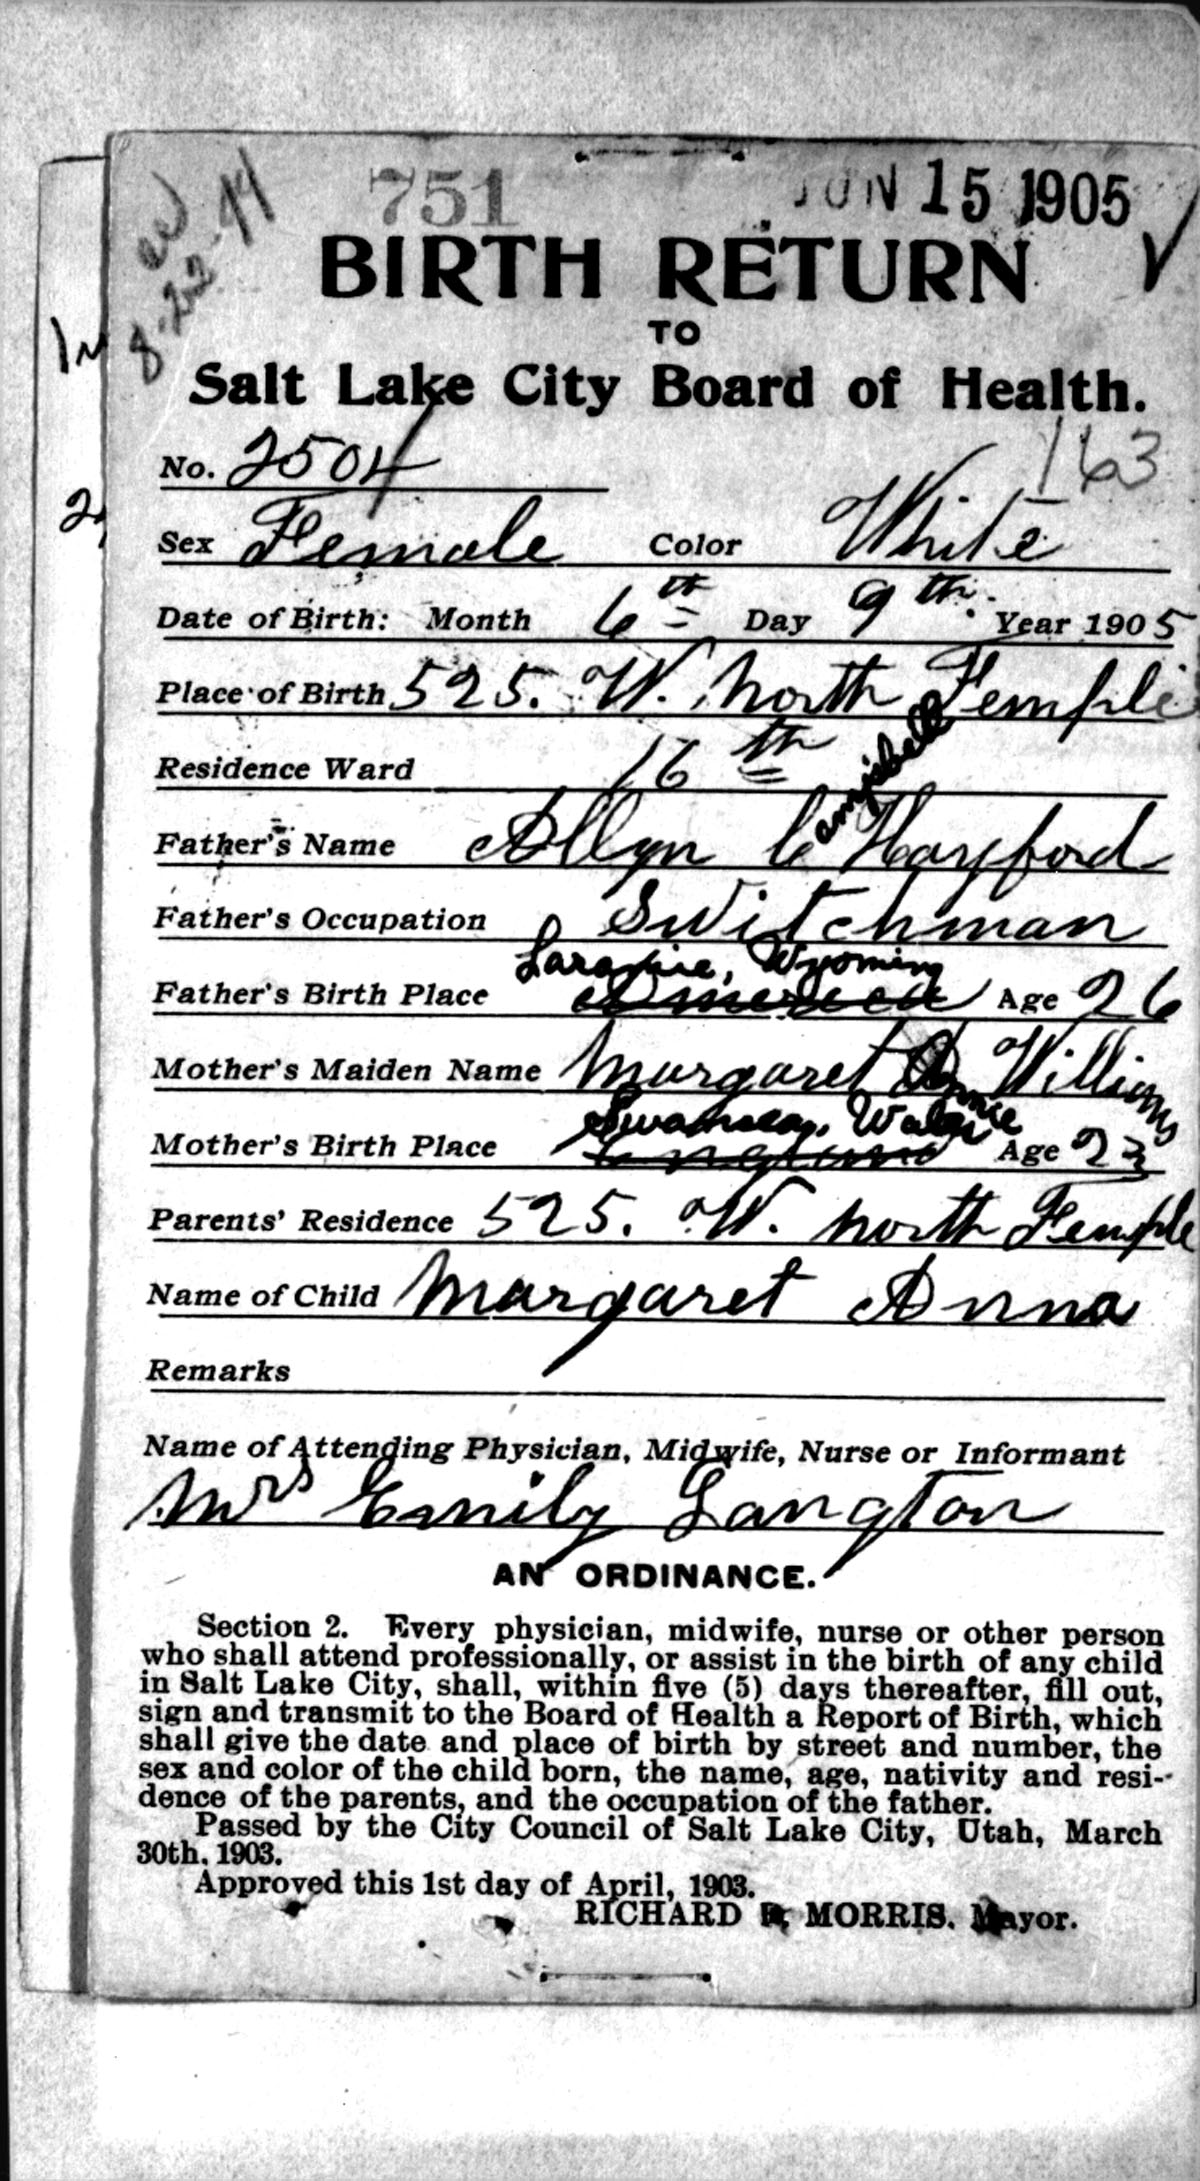 751 JUN 15 1905
8-22-44
BIRTH RETURN
TO
Salt Lake City Board of Health.
163
No. 2504
Sex Female Color White
Date of Birth: Month 6th Day 9th. Year 1905
Place of Birth 525. W. North Temple
Residence Ward 16th
Father's Name Allyn Campbell Hayford
Father's Occupation Switchman
Laramie, Wyoming
Father's Birth Place America Age 26
Mother's Maiden Name Margaret Annie Williams
Swansea, Wales
Mother's Birth Place England Age 23
Parents' Residence 525. W. North Temple
Name of Child Margaret Anna
Remarks
Name of Attending Physician, Midwife, Nurse or Informant
Mrs Emily Langton
AN ORDINANCE.
Section 2. Every physician, midwife, nurse or other person
who shall attend professionally, or assist in the birth of any child
in Salt Lake City, shall, within five (5) days thereafter, fill out,
sign and transmit to the Board of Health a Report of Birth, which
shall give the date and place of birth by street and number, the
sex and color of the child born, the name, age, nativity and resi-
dence of the parents, and the occupation of the father.
Passed by the City Council of Salt Lake City, Utah, March
30th, 1903.
Approved this 1st day of April, 1903.
RICHARD P. MORRIS, Mayor.